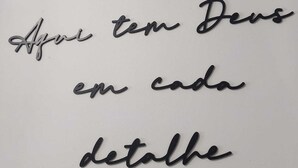 Aqui tem Deus
em cada
detalhe